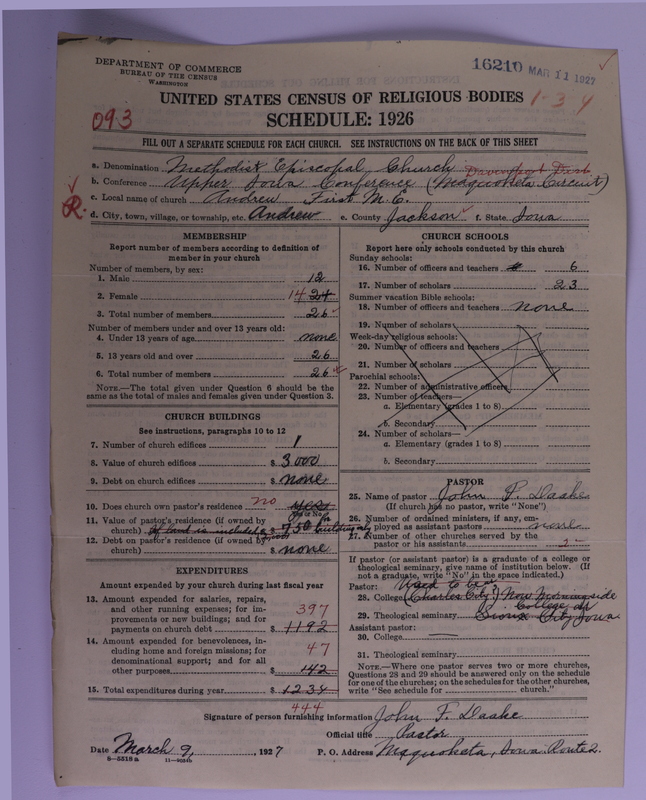 DEPARTMENT OF COMMERCE
BUREAU OF THE CENSUS
WASHINGTON
16210 MAR 11 1927
UNITED STATES CENSUS OF RELIGIOUS BODIES
1-3-4
093
SCHEDULE: 1926
FILL OUT A SEPARATE SCHEDULE FOR EACH CHURCH. SEE INSTRUCTIONS ON THE BACK OF THIS SHEET
a. Denomination Methodist Episcopal Church Davenport Dist
b. Conference Upper Iowa Conference (Maquoketa Circuit)
c. Local name of church Andrew First M. E.
R.
d. City, town, village, or township, etc. Andrew e. County Jackson f. State Iowa
MEMBERSHIP
Report number of members according to definition of
member in your church
Number of members, by sex:
1. Male 12
2. Female 14 24
3. Total number of members 26
Number of members under and over 13 years old:
4. Under 13 years of age none
5. 13 years old and over 26
6. Total number of members 26
NOTE.—The total given under Question 6 should be the
same as the total of males and females given under Question 3.
CHURCH BUILDINGS
See instructions, paragraphs 10 to 12
7. Number of church edifices 1
8. Value of church edifices $ 3000
9. Debt on church edifices $ none
10. Does church own pastor's residence no yes
(Yes or No)
11. Value of pastor's residence (if owned by
church) If land is included $ 750 for building only
12. Debt on pastor's residence (if owned by
church) $ none
EXPENDITURES
Amount expended by church during last fiscal year
13. Amount expended for salaries, repairs,
and other running expenses; for im-
provements or new buildings; and for
payments on church debt $ 1192
397
14. Amount expended for benevolences, in-
cluding home and foreign missions; for
denominational support; and for all
other purposes $ 142
47
15. Total expenditures during year $ 1234
444
CHURCH SCHOOLS
Report here only schools conducted by this church
Sunday schools:
16. Number of officers and teachers 6
17. Number of scholars 23
Summer vacation Bible schools:
18. Number of officers and teachers none
19. Number of scholars
Week-day religious schools:
20. Number of officers and teachers
21. Number of scholars
Parochial schools:
22. Number of administrative officers
23. Number of teachers—
a. Elementary (grades 1 to 8)
b. Secondary
24. Number of scholars—
a. Elementary (grades 1 to 8)
b. Secondary
PASTOR
25. Name of pastor John F. Daake
(If church has no pastor, write "None")
26. Number of ordained ministers, if any, em-
ployed as assistant pastors none
27. Number of other churches served by the
pastor or his assistants 2
If pastor (or assistant pastor) is a graduate of a college or
theological seminary, give name of institution below. (If
not a graduate, write "No" in the space indicated.)
Pastor: Used to be
28. College (Charles City) Now Morningside
College at
29. Theological seminary Sioux City, Iowa
Assistant pastor:
30. College
31. Theological seminary
NOTE.—Where one pastor serves two or more churches,
Questions 28 and 29 should be answered only on the schedule
for one of the churches; on the schedules for the other churches,
write "See schedule for church."
Signature of person furnishing information John F. Daake
Official title Pastor
Date March 9, 1927 P. O. Address Maquoketa, Iowa. Route 2.
8—5518a 11—9024b